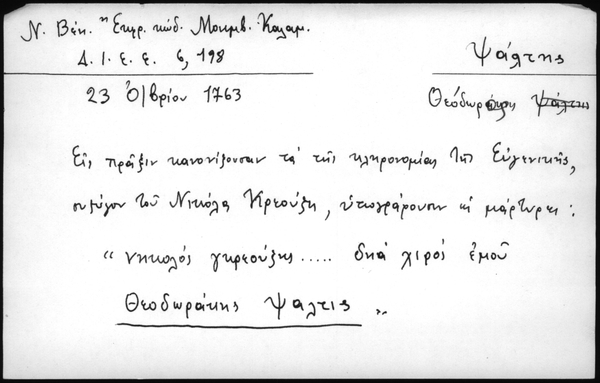 Ν. Βέη. "Εκφρ. κώδ. Μονεμβ. Καλαμ.
Δ. Ι. Ε. Ε. 6, 198
Ψάλτης
23 Ὀ/βρίου 1763
Θεόδωράκης Ψάλτις
Εἰς πρᾶξιν κανονίζουσαν τά τῆς κληρονομίας τῆς Εὐγενικῆς,
συζύγου τοῦ Νικόλα Κρεούζη, ὑπογράφουσιν κἱ μάρτυρες:
"νηκολός γκρεούζης..... δηά χιρός ἐμοῦ
Θεοδωράκης Ψαλτις "